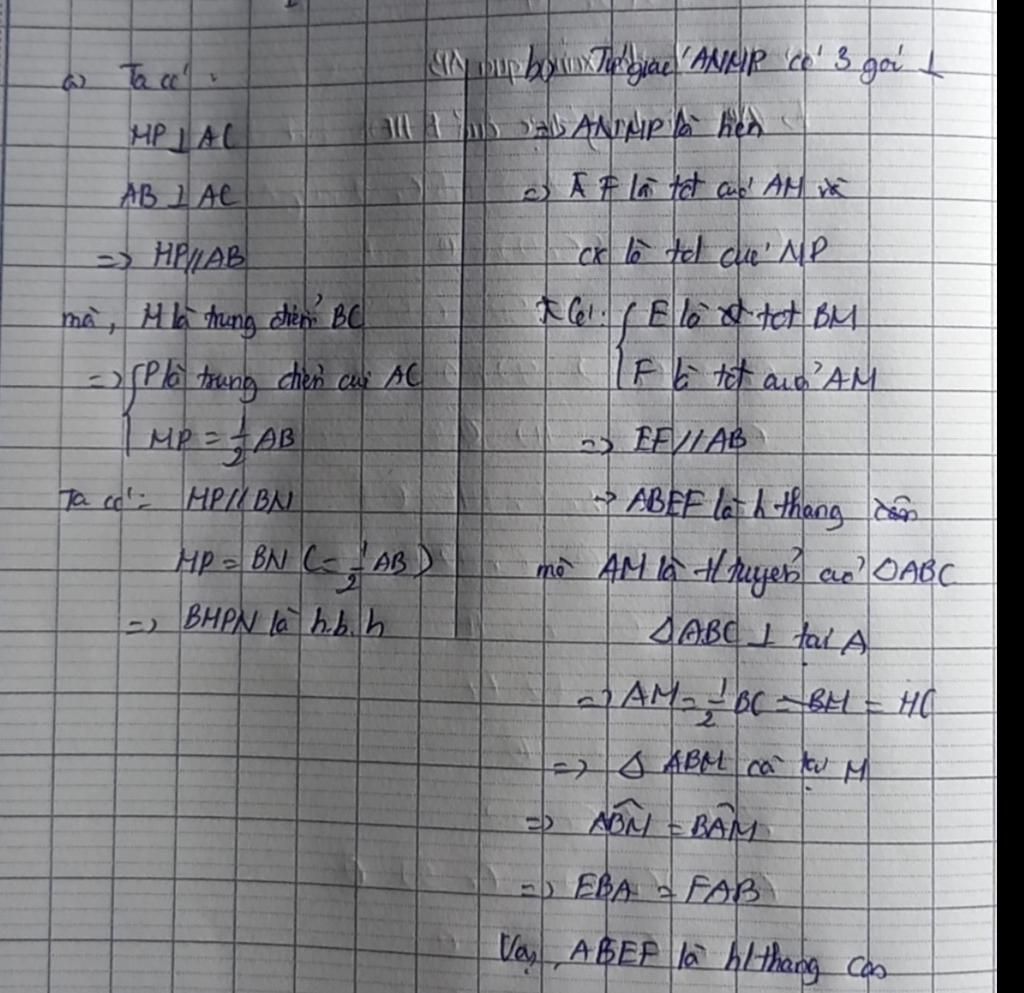 a) Ta có:
MP ⊥ AC
AB ⊥ AC
=> MP // AB
mà, M là trung điểm BC
=> { P là trung điểm của AC
MP = 1/2 AB
Ta có: MP // BN
MP = BN (= 1/2 AB)
=> BMPN là h.b.h
b) Tứ giác ANMP có 3 gói ⊥
=> ANMP là hcn
=> F là tđ của AM và
là tđ của NP
Có: { E là tđ BM
F là tđ của AM
=> EF // AB
=> ABEF là h thang
mà AM là t/tuyến của ΔABC
ΔABC ⊥ tại A
=> AM = 1/2 BC = BM = MC
=> Δ ABM câ tại M
=> ABM = BAM
=> EBA = FAB
Vậy, ABEF là h/thang cân